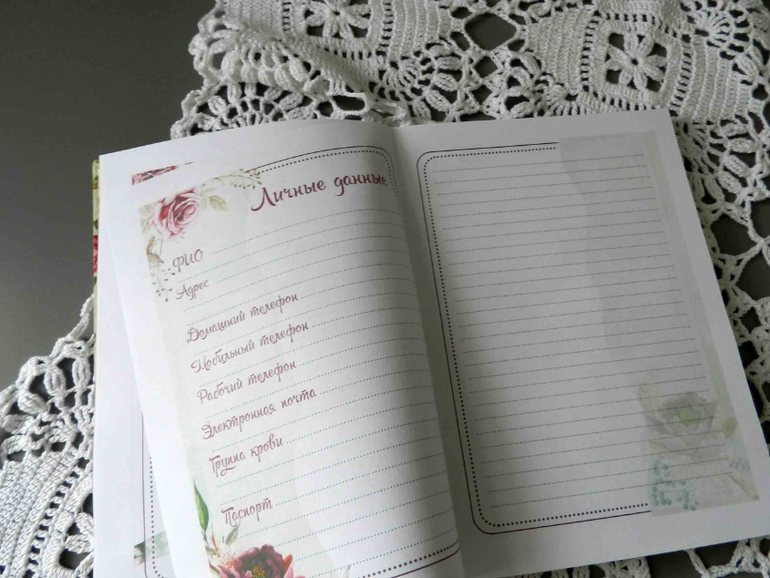 Личные данные
ФИО
Адрес
Домашний телефон
Мобильный телефон
Рабочий телефон
Электронная почта
Группа крови
Паспорт